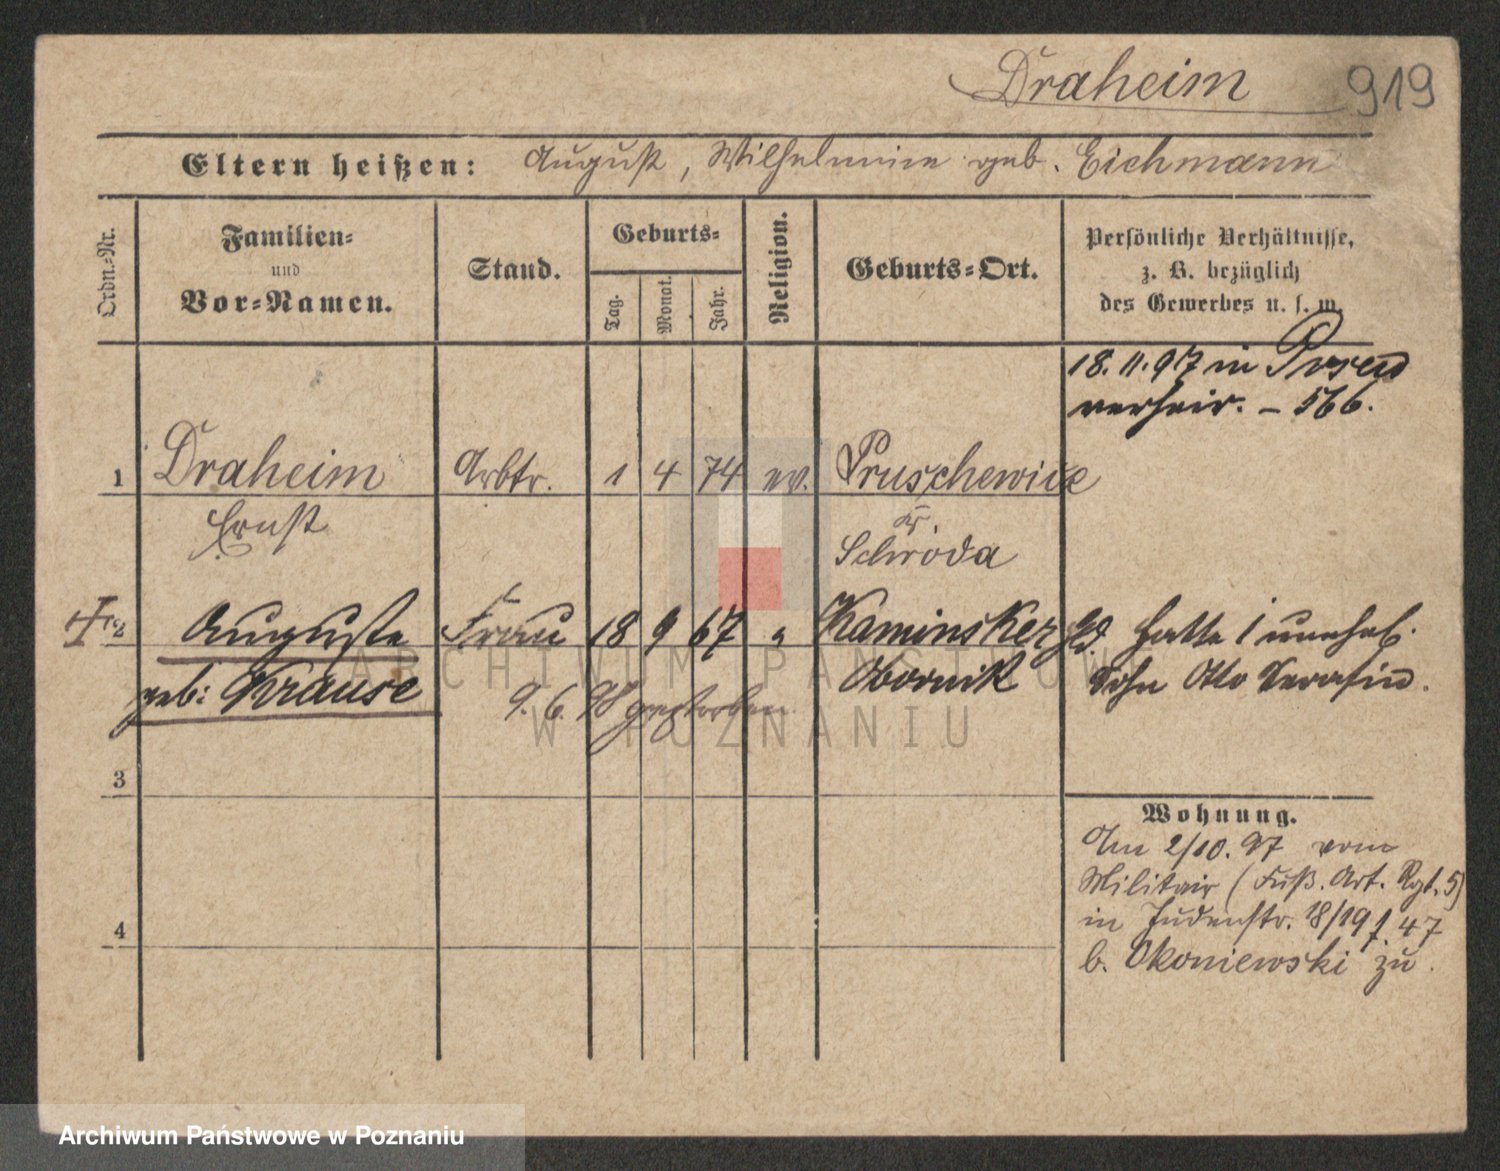 Draheim 919
Eltern heißen: August, Wilhelmine geb. Eichmann
Ordn.-Nr.
Familien-
und
Vor-Namen.
Stand.
Geburts-
Tag.
Monat.
Jahr.
Religion.
Geburts-Ort.
Persönliche Verhältnisse,
z. B. bezüglich
des Gewerbes u. s. w.
18.11.97 in Posen
verheir. – 566.
1 Draheim Arbtr. 1 4 74 ev. Pruschewice
Ernst
Kr.
Schroda
2 Auguste Frau 18 9 67 " Kaminsker Hld. hatte 1 unehel.
geb: Krause
Obornik
Sohn Otto Serafin.
9. 6. 98 gestorben
3
4
Wohnung.
Am 2/10. 97 vom
Militair (Fuß. Art. Rgt. 5)
in Judenstr. 18/19 47
b. Okoniewski zu.
ARCHIWUM PAŃSTWOWE
W POZNANIU
Archiwum Państwowe w Poznaniu